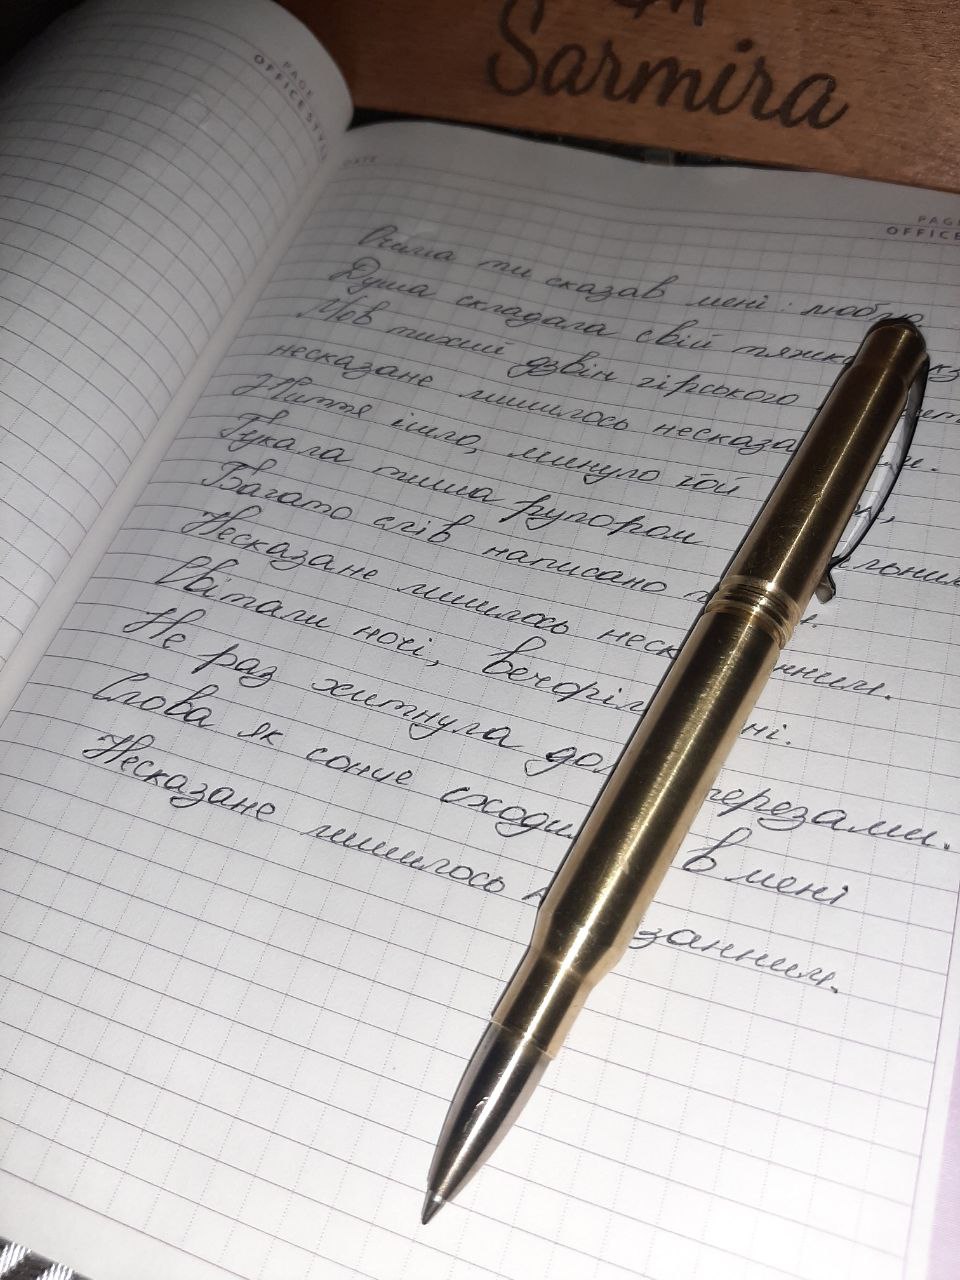 Sarmira
PAGE
OFFICE STYLE
DATE
PAGE
OFFICE
Очима ти сказав мені: люблю
Душа складала свій тяжк
Мов тихий дзвін гірського
несказане лишилось несказа
Життя ішло, минуло той
Гукала тиша рупором льним
Багато слів написано
Несказане лишилось неск нним.
Світали ночі, вечоріл ні.
Не раз хитнула до терезами.
Слова як сонце сходи в мені
Несказане лишилось занним.